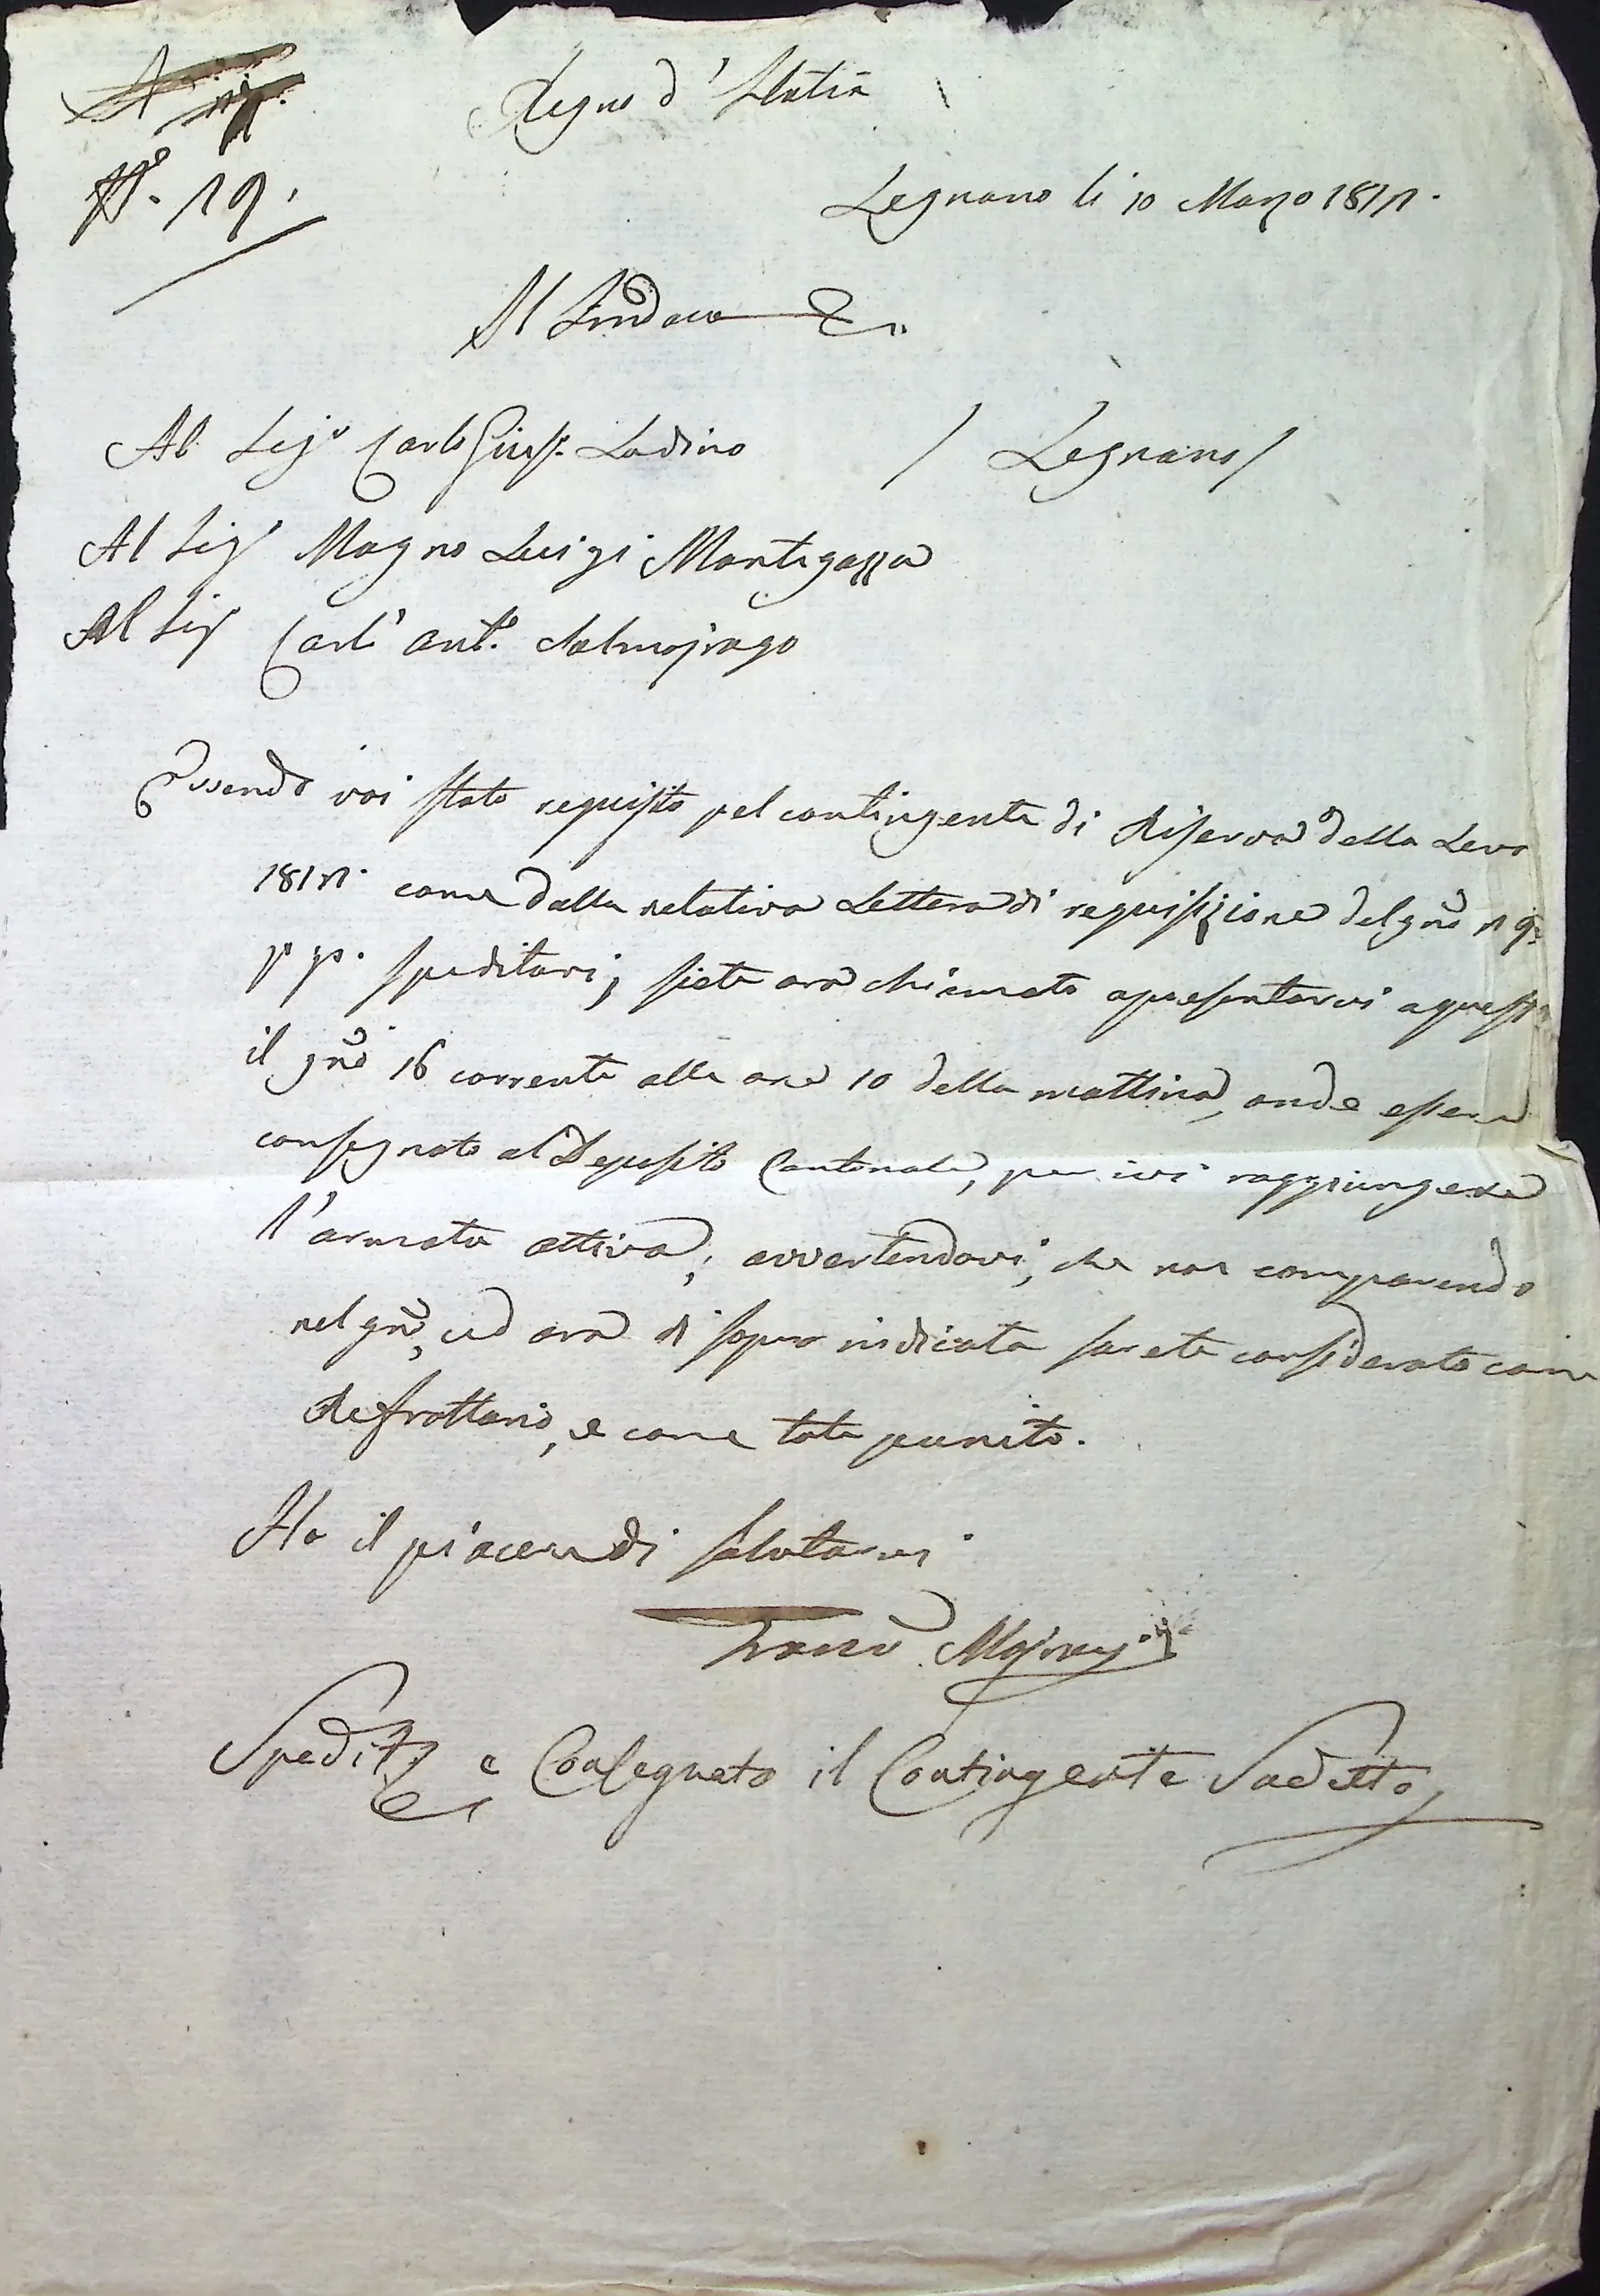 N.° 19.
Regno d'Italia
Legnano li 10 Marzo 1811.
Il Sindaco
Al Sig.r Carlo Gius.e Ladino / Legnano /
Al Sig.r Magno Luigi Mantegazza
Al Sig.r Carl'Ant.o Salmojrago
Essendo voi stato requisito pel contingente di Riserva della Leva
1811. come dalla relativa Lettera di requisizione del gno 19
p.o p.o speditavi, siete ora chiamato a presentarvi a quest
il gno 16 corrente alle ore 10 della mattina, onde essere
consegnato al Deposito Cantonale, per ivi raggiungere
l'armata attiva, avvertendovi, che non comparendo
nel gno, ed ora di sopra indicata sarete considerato come
Refrattario, e come tale punito.
Ho il piacere di salutarvi
Spedito e Consegnato il Contingente Sudetto